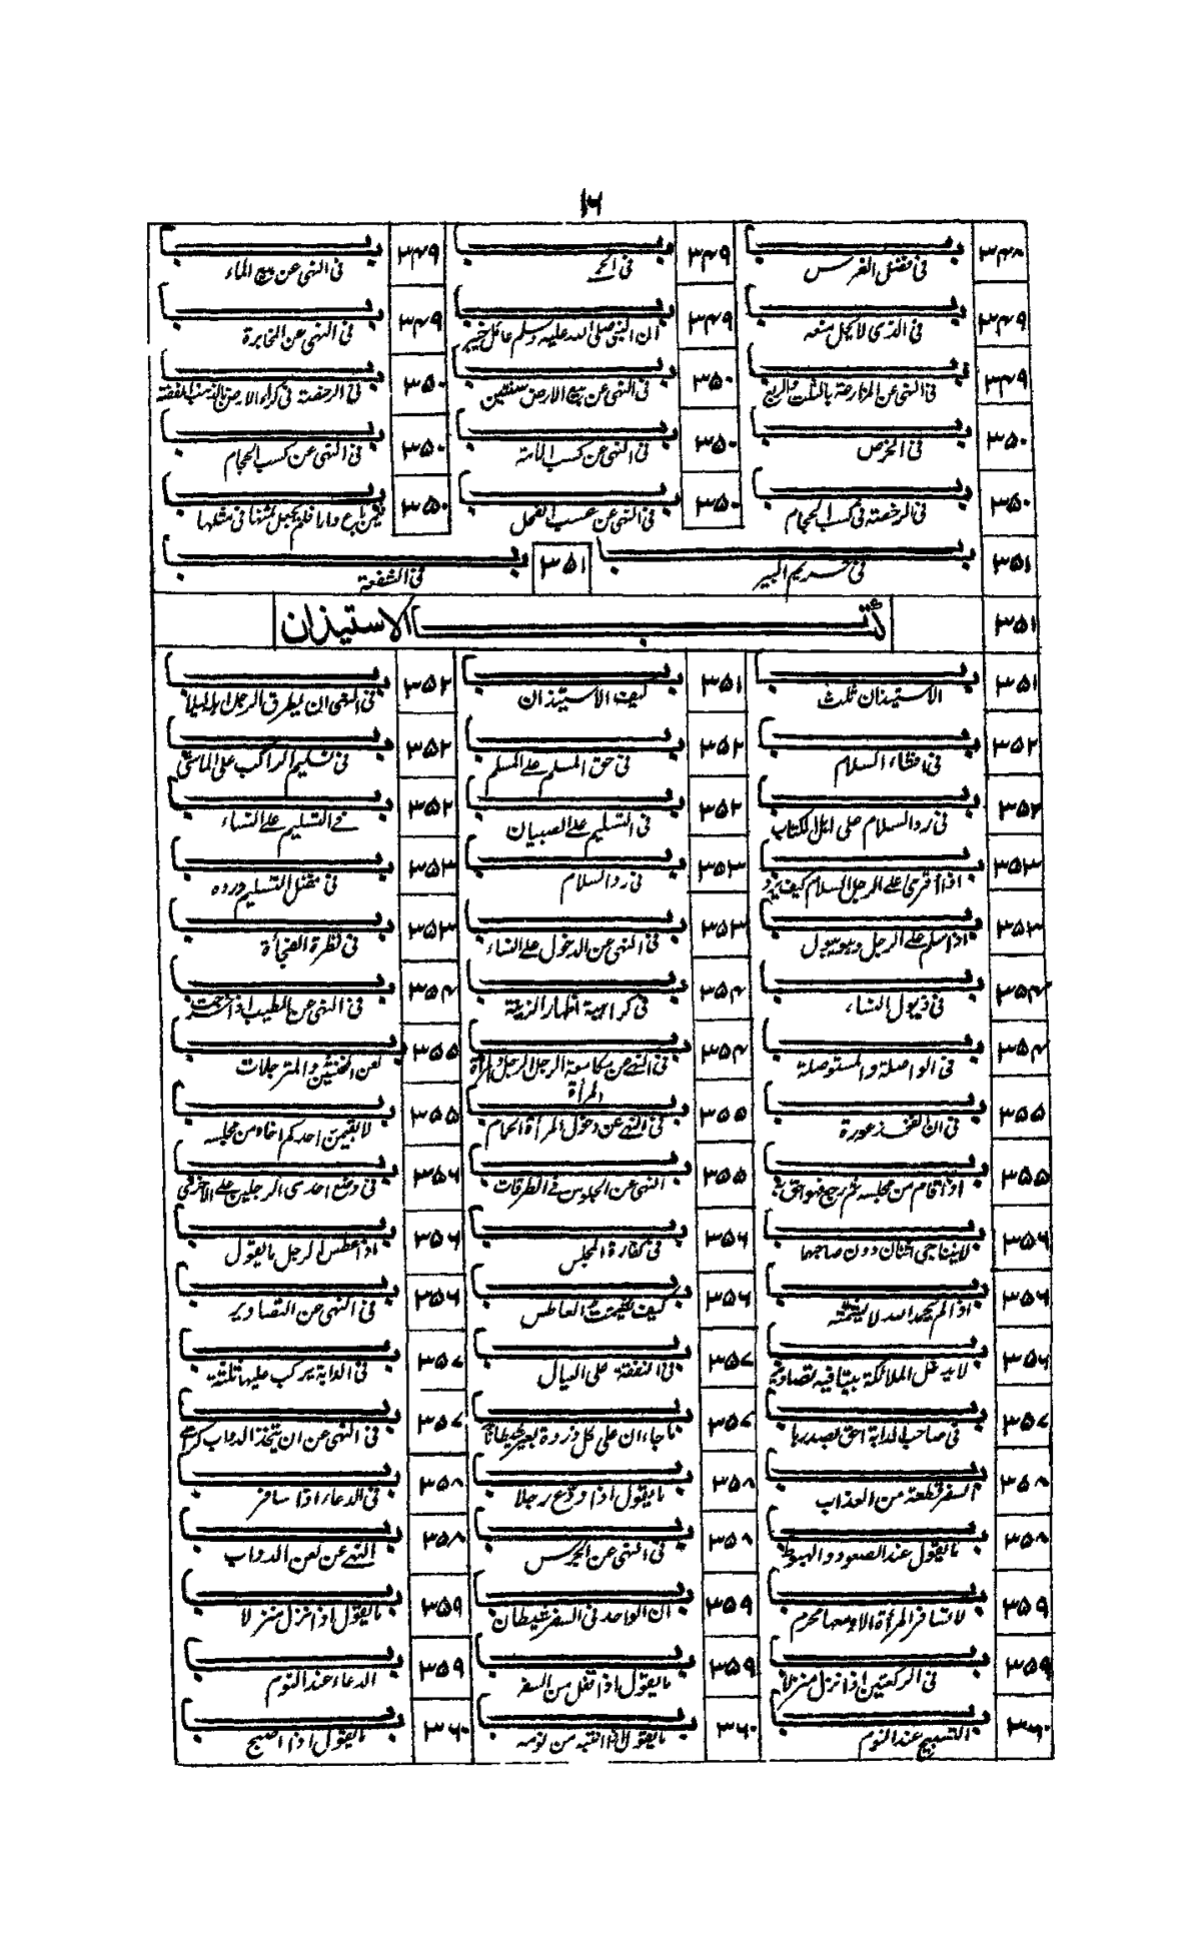 ۱۶
۳۴۸ باب فی فضل الغرس ۳۴۹ باب فی الحمى ۳۴۹ باب فی النهی عن بیع الماء
۳۴۹ باب فی الذی لا یحل منعه ۳۴۹ باب ان النبی صلی الله علیه وسلم عامل خیبر ۳۴۹ باب فی النهی عن المخابرة
۳۴۹ باب فی النهی عن المزارعة بالثلث والربع ۳۵۰ باب فی النهی عن بیع الارض سنتین ۳۵۰ باب فی الرخصة فی کراء الارض بالذهب والفضة
۳۵۰ باب فی الخرص ۳۵۰ باب فی النهی عن کسب الامة ۳۵۰ باب فی النهی عن کسب الحجام
۳۵۰ باب فی الرخصة فی کسب الحجام ۳۵۰ باب فی النهی عن عسب الفحل ۳۵۰ باب فیمن باع دارا فلم یجعل ثمنها فی مثلها
۳۵۱ باب فی حریم البیر ۳۵۱ باب فی الشفعة
۳۵۱ کتاب الاستیذان
۳۵۱ باب الاستیذان ثلث ۳۵۱ باب کیف الاستیذان ۳۵۲ باب فی النهی ان یطرق الرجل اهله لیلا
۳۵۲ باب فی افشاء السلام ۳۵۲ باب فی حق المسلم علی المسلم ۳۵۲ باب فی تسلیم الراکب علی الماشی
۳۵۲ باب فی رد السلام علی اهل الکتاب ۳۵۲ باب فی التسلیم علی الصبیان ۳۵۲ باب فی التسلیم علی النساء
۳۵۳ باب اذا أقرئ علی الرجل السلام کیف یرد ۳۵۳ باب فی رد السلام ۳۵۳ باب فی فضل التسلیم ورده
۳۵۳ باب اذا سلم علی الرجل وهو یبول ۳۵۳ باب فی النهی عن الدخول علی النساء ۳۵۳ باب فی نظرة الفجأة
۳۵۴ باب فی ذیول النساء ۳۵۴ باب فی کراهیة اظهار الزینة ۳۵۴ باب فی النهی عن الطیب اذا خرجت
۳۵۴ باب فی الواصلة والمستوصلة ۳۵۴ باب فی النهی عن مکامعة الرجل الرجل والمرأة المرأة ۳۵۵ باب لعن المخنثین والمترجلات
۳۵۵ باب فی ان الفخذ عورة ۳۵۵ باب فی النهی عن دخول المرأة الحمام ۳۵۵ باب لا یقیمن احدکم اخاه من مجلسه
۳۵۵ باب اذا قام من مجلسه ثم رجع فهو احق به ۳۵۵ باب النهی عن الجلوس فی الطرقات ۳۵۶ باب فی وضع احدی الرجلین علی الاخری
۳۵۶ باب لا یتناجی اثنان دون صاحبهما ۳۵۶ باب فی کفارة المجلس ۳۵۶ باب اذا عطس الرجل ما یقول
۳۵۶ باب اذا لم یحمد الله لا یشمته ۳۵۶ باب کیف تشمیت العاطس ۳۵۶ باب فی النهی عن التصاویر
۳۵۶ باب لا یدخل الملائکة بیتا فیه تصاویر ۳۵۷ باب فی النفقة علی العیال ۳۵۷ باب فی الدابة یرکب علیها ثلثة
۳۵۷ باب فی صاحب الدابة احق بصدرها ۳۵۷ باب ما جاء ان علی کل ذروة بعیر شیطانا ۳۵۷ باب فی النهی عن ان یتخذ الدواب کراسی
۳۵۸ باب السفر قطعة من العذاب ۳۵۸ باب ما یقول اذا ودع رجلا ۳۵۸ باب فی الدعاء اذا سافر
۳۵۸ باب ما یقول عند الصعود والهبوط ۳۵۸ باب فی النهی عن الجرس ۳۵۸ باب النهی عن لعن الدواب
۳۵۹ باب لا تسافر المرأة الا ومعها محرم ۳۵۹ باب ان الواحد فی السفر شیطان ۳۵۹ باب ما یقول اذا نزل منزلا
۳۵۹ باب فی الرکعتین اذا نزل منزلا ۳۵۹ باب ما یقول اذا قفل من السفر ۳۵۹ باب الدعاء عند النوم
۳۶۰ باب التسبیح عند النوم ۳۶۰ باب ما یقول اذا انتبه من نومه ۳۶۰ باب ما یقول اذا اصبح